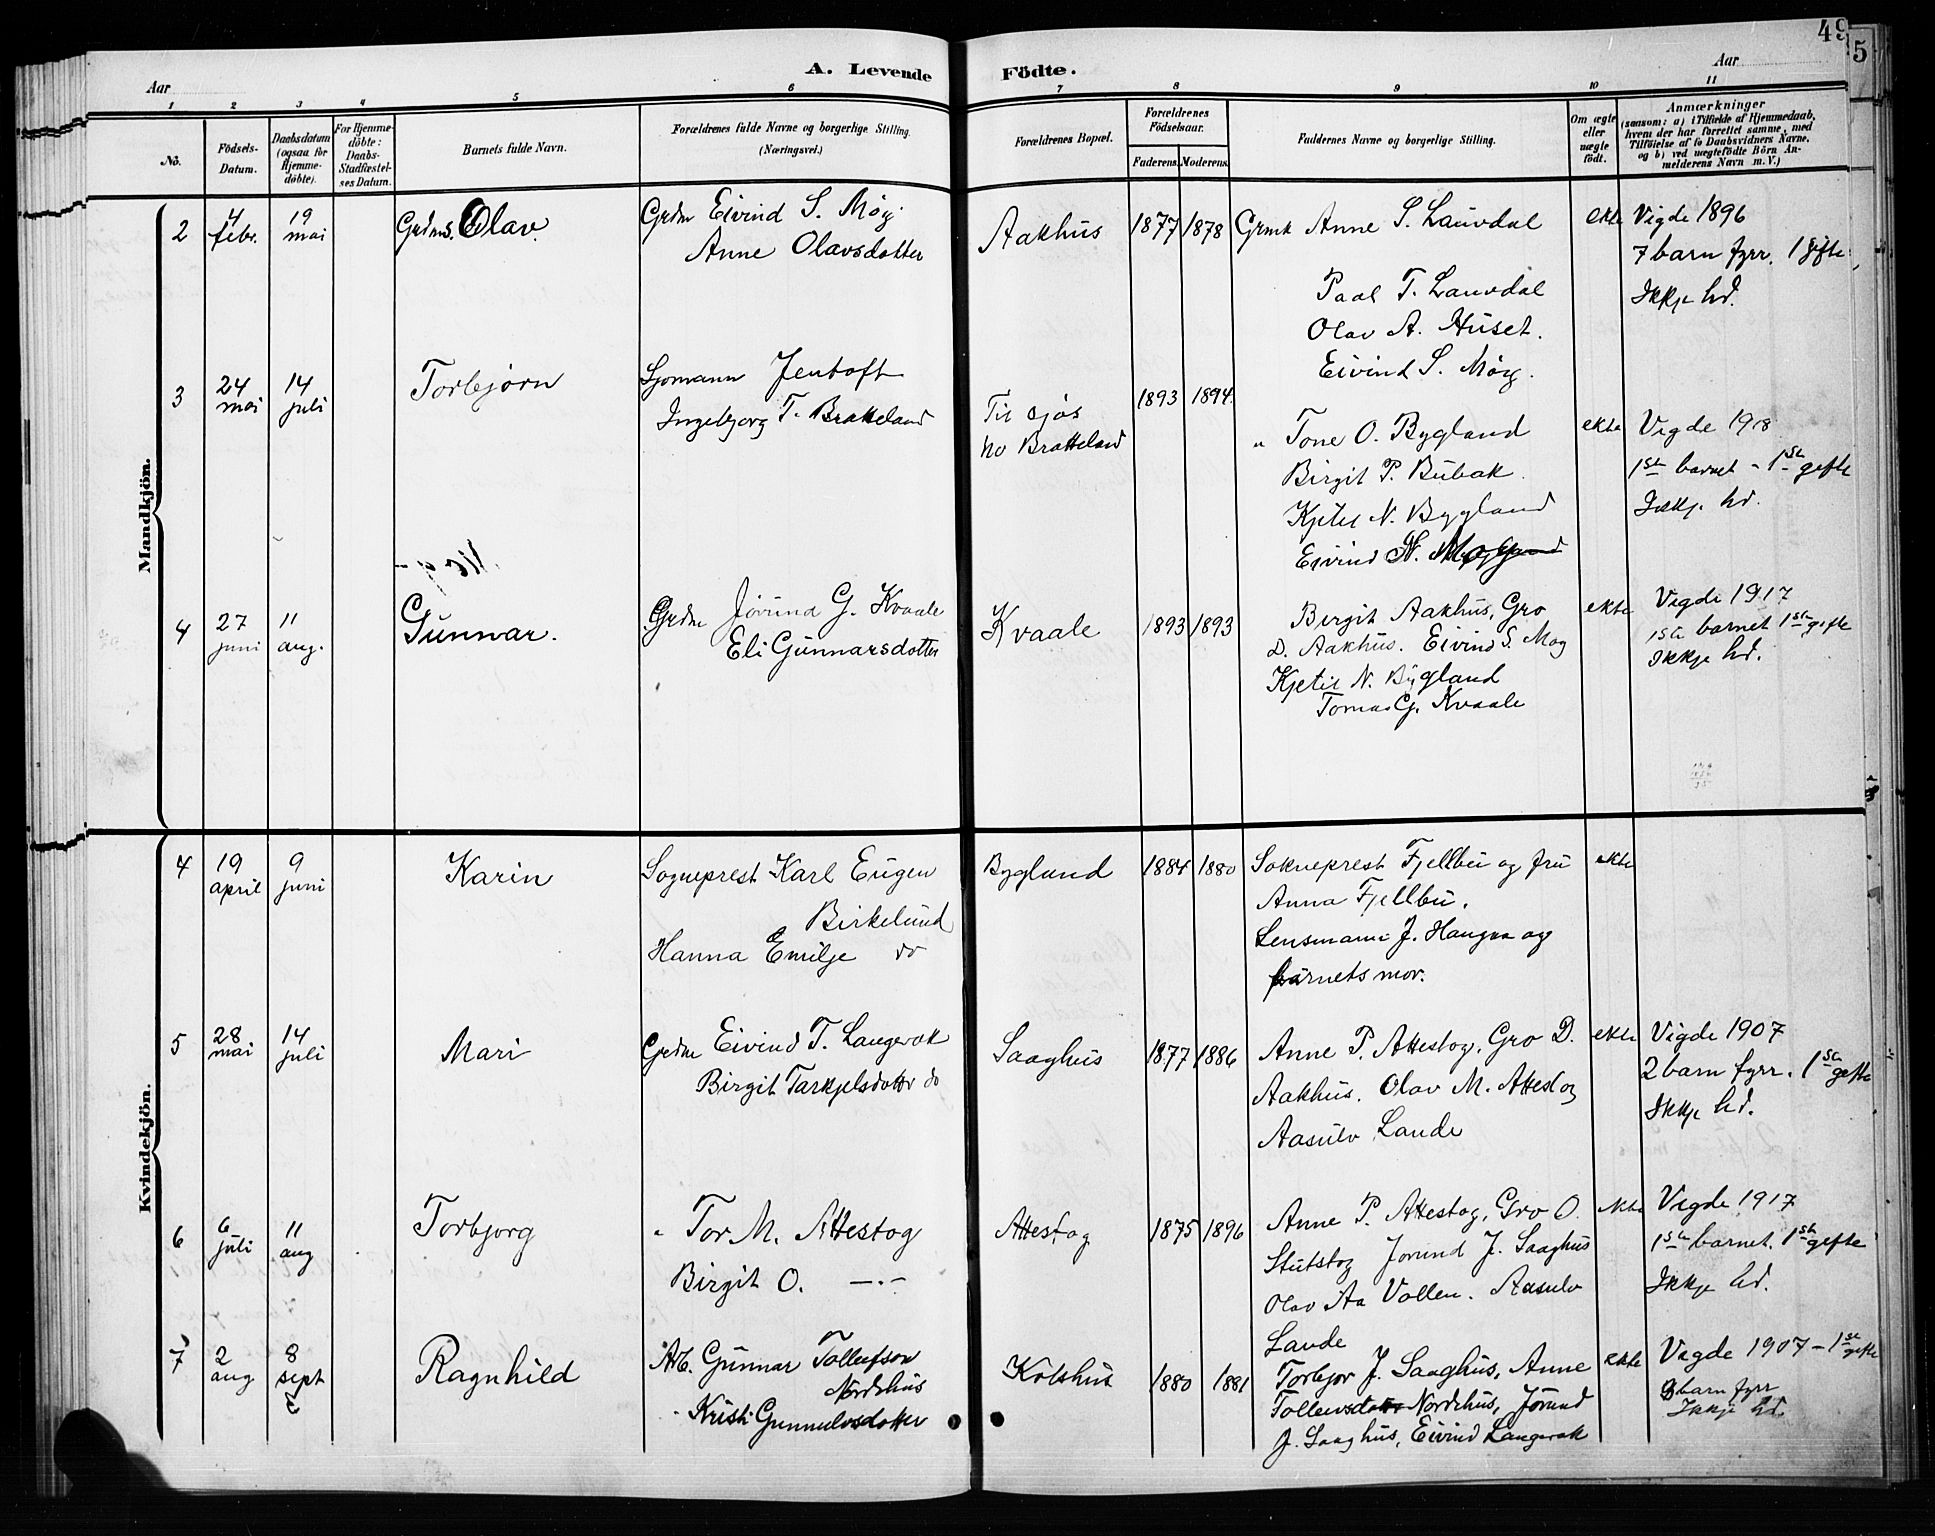 49
5
Aar
A. Levende
Födte.
Aar
1 2 3 4 5 6 7 8 9 10 11
No.
Födsels-
Datum.
Daabsdatum
(ogsaa for
Hjemme-
döbte).
For Hjemme-
döbte:
Daabs-
Stadfæstel-
ses Datum.
Barnets fulde Navn.
Forældrenes fulde Navne og borgerlige Stilling.
(Næringsvei.)
Forældrenes Bopæl.
Forældrenes
Födselsaar.
Faderens. Moderens.
Faddernes Navne og borgerlige Stilling.
Om ægte
eller
uægte
födt.
Anmærkninger
(saasom: a) i Tilfælde af Hjemmedaab,
hvem der har forrettet samme, med
Tilföielse af to Daabsvidners Navne,
og b) ved uægtefödte Börn An-
melderens Navn m. V.)
Mandkjön.
2
4
febr.
19
mai
Grdms. Olav.
Grdm Eivind S. Møg.
Anne Olavsdotter
Aakhus
1877 1878
Grmk Anne S. Lauvdal
Paal T. Lauvdal
Olav A. Huset.
Eivind S. Møg.
ekte
Vigde 1896
7 barn fyrr. 1 gifte
Ikkje hd.
3
24
mai
14
juli
Torbjørn
Sjomann Jentoft
Ingebjorg T. Bratteland
Til sjøs
no Bratteland
1893 1894.
" Tone O. Bygland
Birgit P. Bubak.
Kjetil N. Bygland
Eivind N.
ekte
Vigde 1918
1ste barnet - 1ste gifte
Ikkje hd.
4
27
juni
11
aug.
Gunnar.
Grdm Jørund G. Kvaale
Eli Gunnarsdotter
Kvaale
1893 1893
Birgit Aakhus, Gro
D. Aakhus. Eivind S. Mog
Kjetil N. Bygland
Tomas G. Kvaale
ekte
Vigde 1917
1ste barnet 1ste gifte
Ikkje hd.
Kvindekjön.
4
19
april
9
juni
Karin
Sogneprest Karl Eugen
Birkelund
Hanna Emilje do
Bygland
1884 1880
Sokneprest Fjellbu og fru
Anna Fjellbu.
Lensmann J. Haugen og
barnets mor.
ekte
5
28
mai
14
juli
Mari
Grdm Eivind T. Langerak
Birgit Tarkjelsdotter do
Saaghus
1877 1886
Anne P. Attestog, Gro D.
Aakhus. Olav M. Attestog
Aasulv Lande
ekte
Vigde 1907
2 barn fyrr. 1ste gifte
Ikkje hd.
6
6
juli
11
aug
Torbjorg
" Tor M. Attestog
Birgit O. —"—
Attestog
1875 1896
Anne P. Attestog, Gro O.
Stutstog Jorund J. Saaghus
Olav Aa Vollen. Aasulv
Lande
ekte
Vigde 1917
1ste barnet. 1ste gifte
Ikkje hd.
7
2
aug
8
sept
Ragnhild
Arb. Gunnar Tollefson
Nordshus
Kristi Gunnulvsdotter
Kolshus
1880 1881
Torbjor J. Saaghus, Anne
Tollevsdotter Nordshus, Jørund
J. Saaghus, Eivind Langerak
ekte
Vigde 1907 - 1ste gifte
barn fyrr
Ikkje hd.